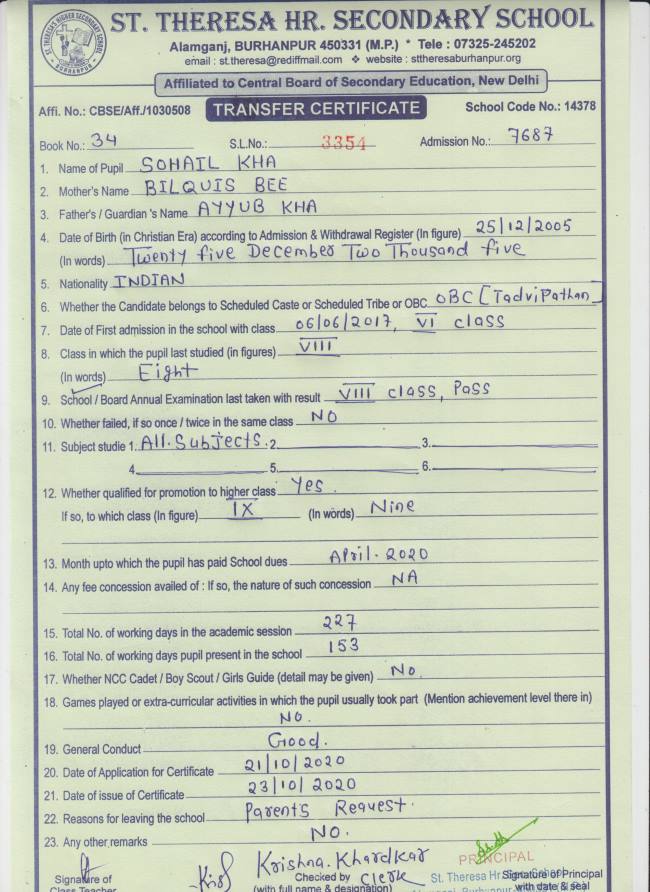 ST. THERESA HR. SECONDARY SCHOOL
Alamganj, BURHANPUR 450331 (M.P.) * Tele : 07325-245202
email : st.theresa@rediffmail.com ❖ website : sttheresaburhanpur.org
ST. THERESA'S HIGHER SECONDARY SCHOOL
BURHANPUR
Affiliated to Central Board of Secondary Education, New Delhi
Affi. No.: CBSE/Aff./1030508 TRANSFER CERTIFICATE School Code No.: 14378
Book No.: 34 S.L.No.: 3354 Admission No.: 7687
1. Name of Pupil SOHAIL KHA
2. Mother's Name BILQUIS BEE
3. Father's / Guardian 's Name AYYUB KHA
4. Date of Birth (in Christian Era) according to Admission & Withdrawal Register (In figure) 25/12/2005
(In words) Twenty five December Two Thousand five
5. Nationality INDIAN
6. Whether the Candidate belongs to Scheduled Caste or Scheduled Tribe or OBC OBC [Tadvi Pathan]
7. Date of First admission in the school with class 06/06/2017, VI class
8. Class in which the pupil last studied (in figures) VIII
(In words) Eight
9. School / Board Annual Examination last taken with result VIII class, Pass
10. Whether failed, if so once / twice in the same class NO
11. Subject studie 1. All. Subjects. 2. 3.
4. 5. 6.
12. Whether qualified for promotion to higher class Yes.
If so, to which class (In figure) IX (In words) Nine
13. Month upto which the pupil has paid School dues April. 2020
14. Any fee concession availed of : If so, the nature of such concession NA
15. Total No. of working days in the academic session 227
16. Total No. of working days pupil present in the school 153
17. Whether NCC Cadet / Boy Scout / Girls Guide (detail may be given) No.
18. Games played or extra-curricular activities in which the pupil usually took part (Mention achievement level there in)
NO.
19. General Conduct Good.
20. Date of Application for Certificate 21/10/2020
21. Date of issue of Certificate 23/10/2020
22. Reasons for leaving the school Parents Request.
23. Any other remarks NO.
Krishna. Khardkar
PRINCIPAL
Signature of Checked by Clerk St. Theresa Hr. Signature of Principal
Class Teacher (with full name & designation) with date & seal